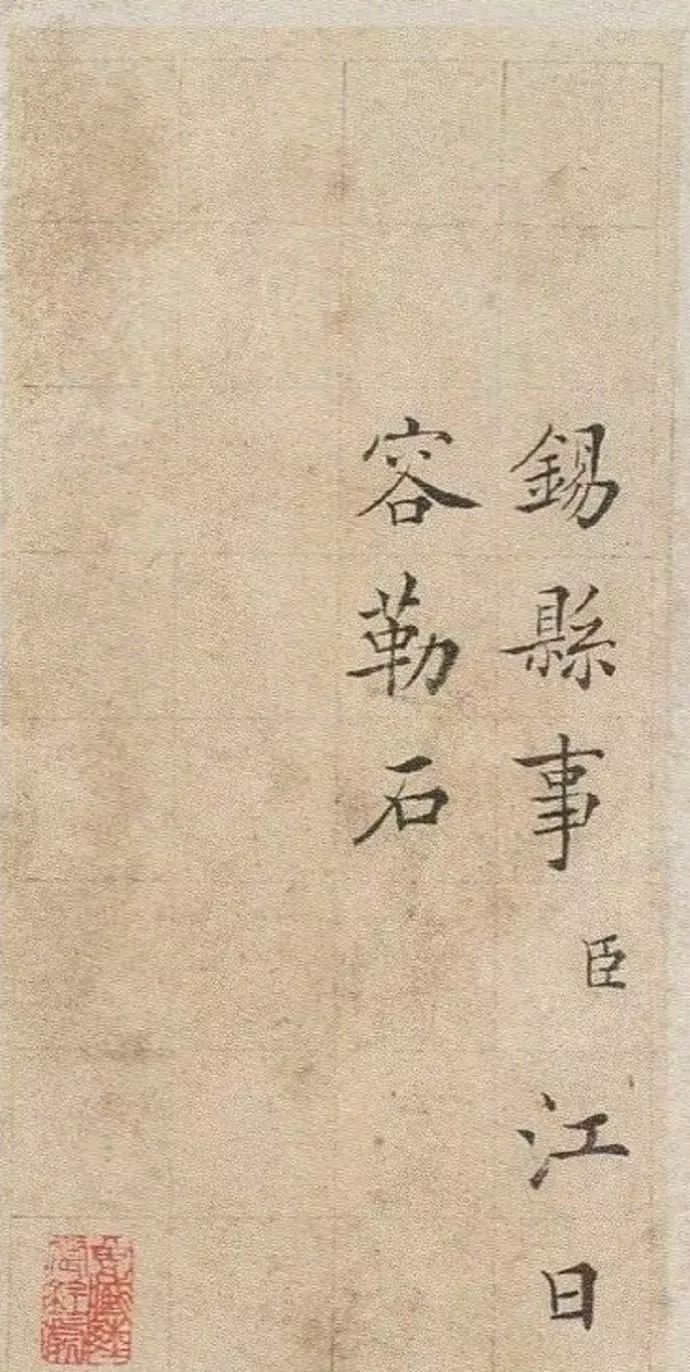 錫縣事臣江日
容勒石